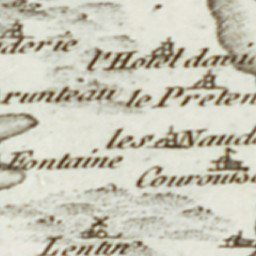 derie
l'Hotel davi
runteau le Preten
les Naud
Fontaine
Courouss
Lentin